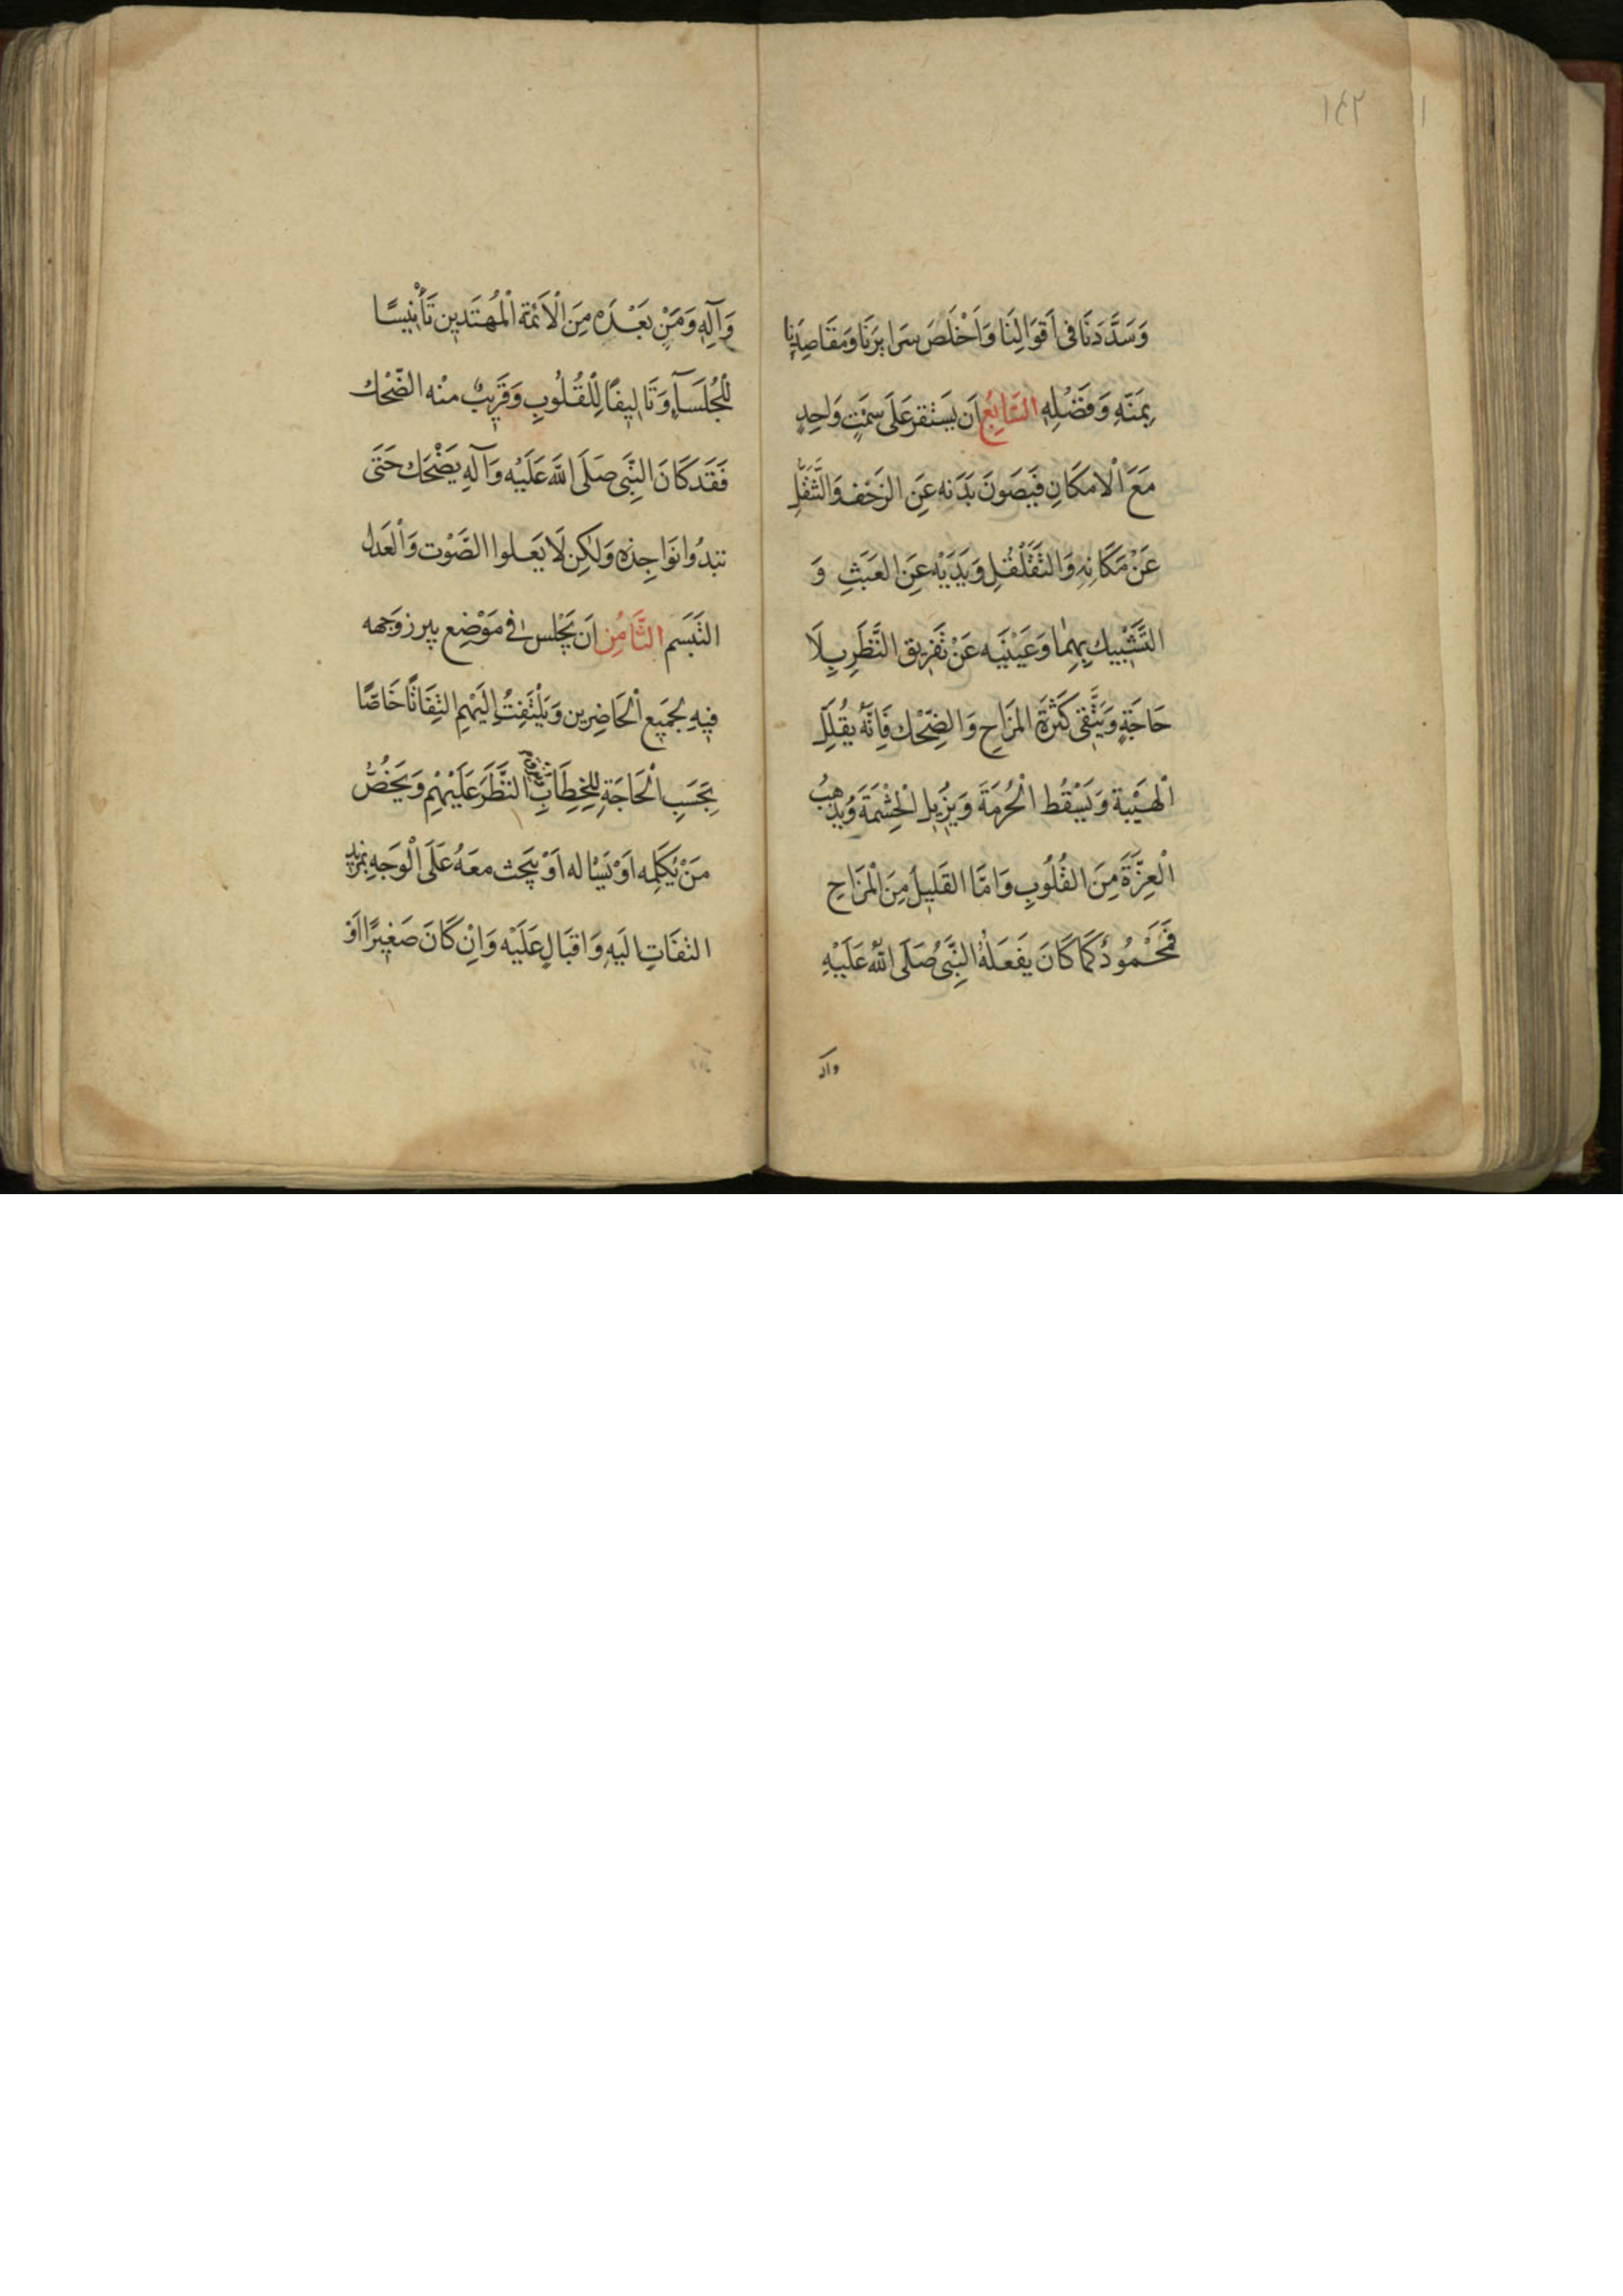 ١٤٢
وَسَدَّدَنَا فى اَقوَالِنَا وَاَخْلَصَ سَرايِرَنَا وَمَقَاصِدَنِا
بِمَنّهِ وَفَضْلِهِ السَّابِعُ اَن يَسْتقرعَلَى سِمْتٍ وَاحِدٍ
مَعَ الْامكَانِ فَيصَونَ بَدَنه عَنِ الزَحْف وَالتَّنَقُّلِ
عَنْ مَكَانِهِ وَالتَّقَلْقُلِ وَيَدَيْهِ عَنِ العَبَثِ وَ
التَّشْبِيكِ بِهِمَا وَعَيْنَيه عَنْ تَفْرِيق النَّظَرِ بِلَا
حَاجَةٍ وَيَتَّقى كَثرَةَ المَزَاحِ وَالضِّحْك فَاِنَّهُ يقُلِلّ
الْهَيْبة وَيَسْقُط الْحُرمَةَ وَيُزيل الْحِشْمَةَ وَيُذهِبُ
الْعِزَّةَ مِنَ القُلُوبِ وَامَّا القَلِيلُ مِنَ الْمَزَاحِ
فَمَحْمُودٌ كَمَا كَانَ يَفعَلَهُ النَّبِىُّ صَلَى اللّٰهُ عَلَيْهِ
وآله
وَآلِهِ وَمَنْ بَعْدَه مِنَ الْاَئمة الْمُهتَدين تَأْنِيسًا
لْلجُلَسَآءِ وَتَاليفًا لِلْقُلُوبِ وَقَرِيبٌ منْه الضّحْك
فَقَد كَانَ النَّبِىَ صَلَى اللّٰهَ عَلَيْه وَآلهِ يَضْحَك حَتَى
تبدُوا نَوَاجِذه وَلٰكِن لَا يَعلوا الصَوْت وَالْعَدل
التبَسَم الثَّامُن اَن يَجْلس فى مَوْضِع يبرز وَجهه
فيِهِ لجَميِع الْحَاضِرين وَيَلْتَفِتُ اِلَيْهِم التِفَاتًا خَاصًّا
بِحَسَبِ الْحَاجَةِ لِلخِطَابِ النَّظَرَ عَلَيْهْمِ وَيَخُصُّ
مَنْ يُكَلِمه اَوْ يَسْاله اَوْ يَبحث معَهُ عَلَى الْوَجَهِ بمزيد
التفَاتٍ اليَهِ وَاقبَالٍ عَلَيْه وَاِنْ كَانَ صَغِيرًا اَوْ